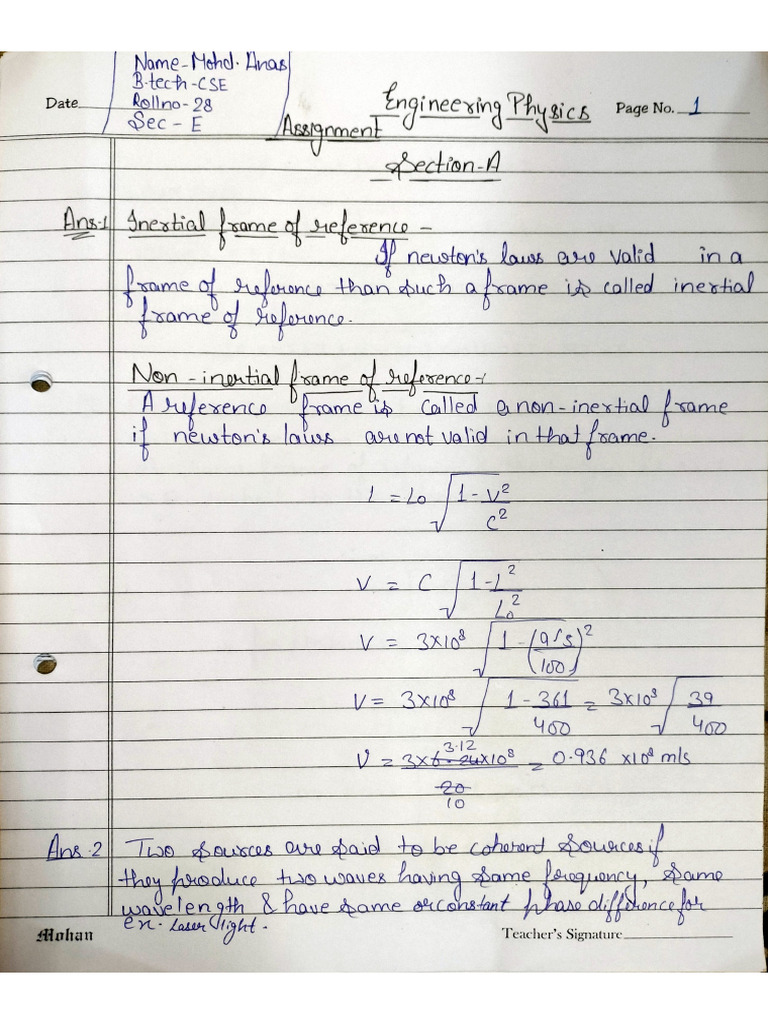 Name-Mohd. Anas
B-tech-CSE
Date
Rollno-28
Sec - E
Engineering Physics
Page No. 1
Assignment
Section-A
Ans-1 Inertial frame of reference -
If newton's laws are valid in a
frame of reference than such a frame is called inertial
frame of reference.
Non-inertial frame of reference-:
A reference frame is called a non-inertial frame
if newton's laws are not valid in that frame.
l = Lo √1-V²/C²
V = C √1-L²/Lo²
V = 3×10⁸ √1-(95/100)²
V = 3×10⁸ √1-361/400 = 3×10⁸ √39/400
V = 3×3.12×10⁸/10 = 0.936 ×10⁸ m/s
Ans-2 Two sources are said to be coherent sources if
they produce two waves having same frequency, same
wavelength & have same or constant phase difference for
ex. Laser light.
Mohan
Teacher's Signature